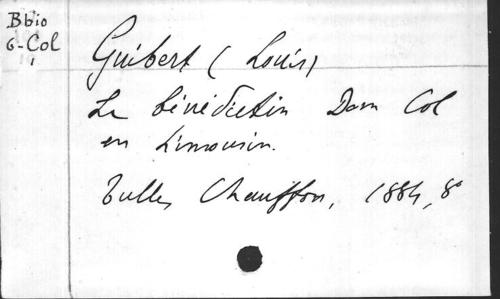 Bbio
6-Col
Guibert (Louis)
Le bénédictin Dom Col
en Limousin.
Tulle, Chauffon, 1884, 8°